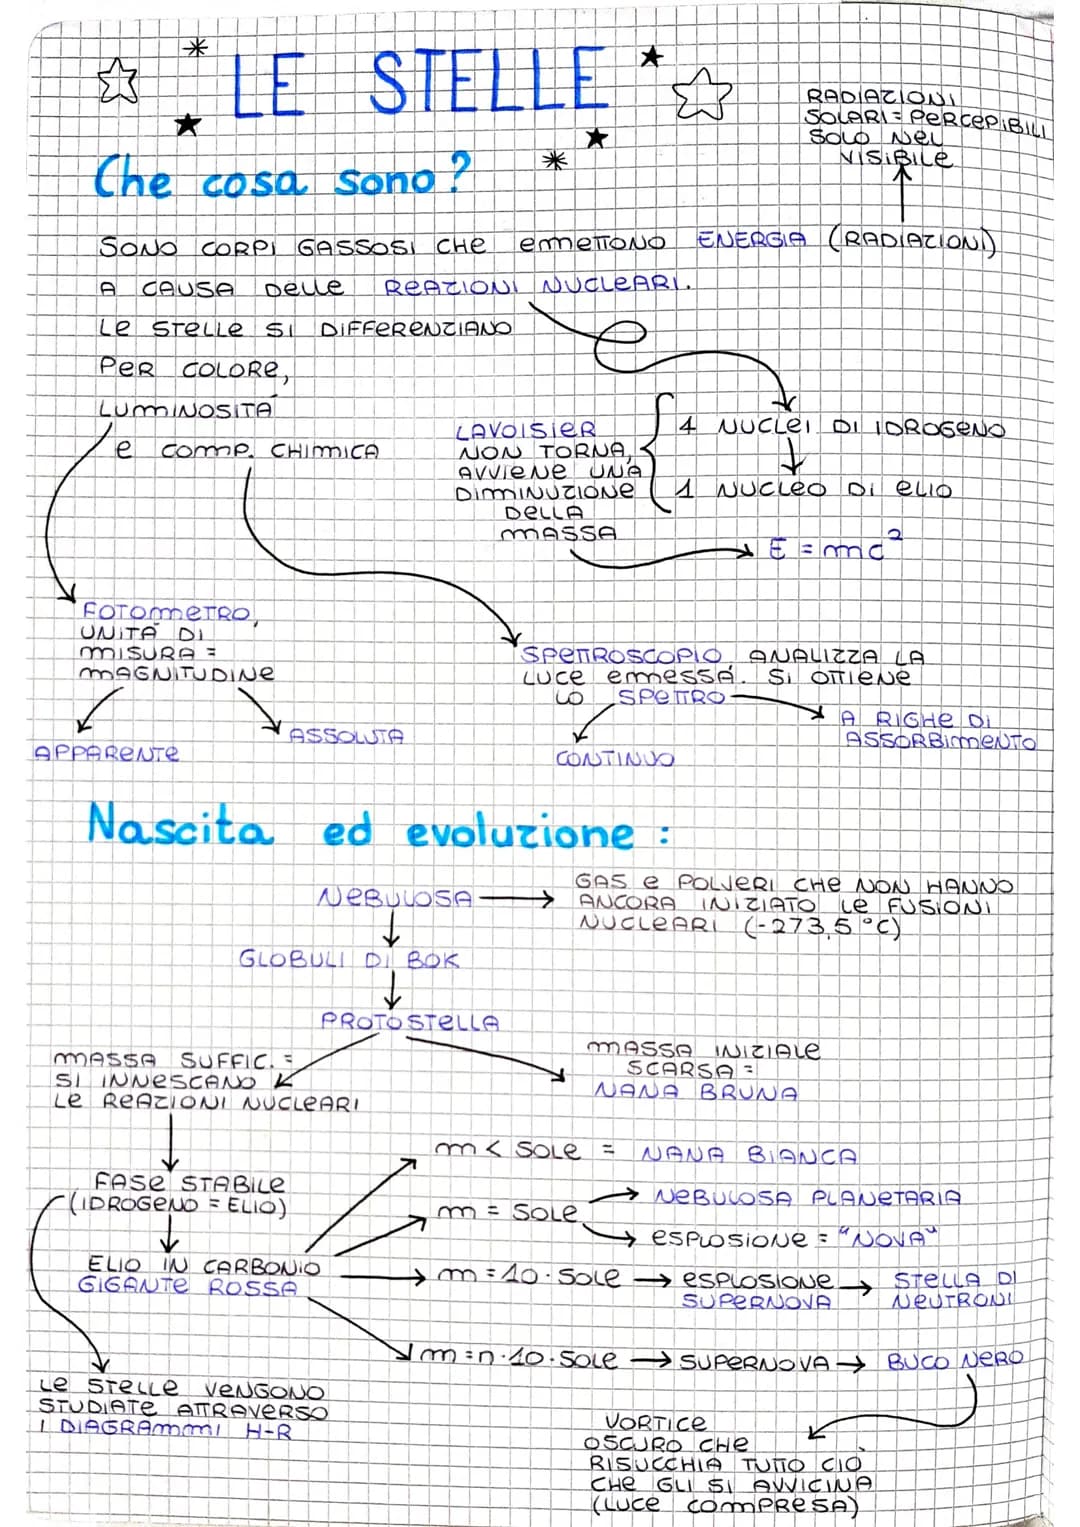 LE STELLE
RADIAZIONI
SOLARI = PERCEPIBILI
SOLO NEL
VISIBILE
Che cosa sono?
SONO CORPI GASSOSI CHE EMETTONO ENERGIA (RADIAZIONI)
A CAUSA DELLE REAZIONI NUCLEARI.
LE STELLE SI DIFFERENZIANO
PER COLORE,
LUMINOSITÀ
E COMP. CHIMICA
LAVOISIER
NON TORNA,
AVVIENE UNA
DIMINUZIONE
DELLA
MASSA
4 NUCLEI DI IDROGENO
1 NUCLEO DI ELIO
E = mc²
FOTOMETRO,
UNITÀ DI
MISURA =
MAGNITUDINE
APPARENTE
ASSOLUTA
SPETTROSCOPIO, ANALIZZA LA
LUCE EMESSA. SI OTTIENE
LO SPETTRO
CONTINUO
A RIGHE DI
ASSORBIMENTO
Nascita ed evoluzione :
NEBULOSA
GAS E POLVERI CHE NON HANNO
ANCORA INIZIATO LE FUSIONI
NUCLEARI (-273,5 °C)
GLOBULI DI BOK
PROTOSTELLA
MASSA SUFFIC. =
SI INNESCANO
LE REAZIONI NUCLEARI
MASSA INIZIALE
SCARSA =
NANA BRUNA
FASE STABILE
(IDROGENO = ELIO)
ELIO IN CARBONIO
GIGANTE ROSSA
m < SOLE = NANA BIANCA
m = SOLE
NEBULOSA PLANETARIA
ESPLOSIONE = "NOVA"
m = 10 · SOLE
ESPLOSIONE
SUPERNOVA
STELLA DI
NEUTRONI
m = n · 10 · SOLE
SUPERNOVA
BUCO NERO
LE STELLE VENGONO
STUDIATE ATTRAVERSO
I DIAGRAMMI H-R
VORTICE
OSCURO CHE
RISUCCHIA TUTTO CIÒ
CHE GLI SI AVVICINA
(LUCE COMPRESA)